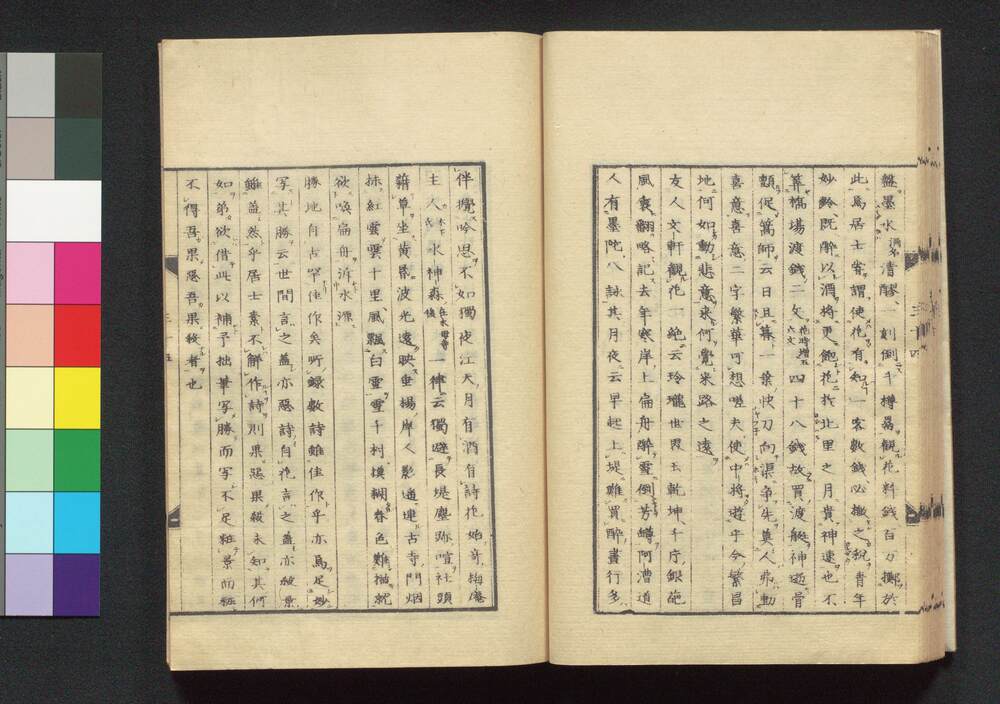 鹽墨水酒名清醪一刻倒千樽曷観花料銭百万擲於
此烏居士嘗謂使花有知一客数銭必撤之税青年
妙齢既酔以酒将更飽花折北里之月貴神速也不
算橋場渡銭二文花時増至六文四十八銭故買渡艇神逝骨
顫促篙師云日且暮一葉快刀向渠争先莫人弗動
喜意喜意二字繁華可想嗟夫使中将遊乎今繁昌
地何如動悲意来何覚来路之遠
友人文軒観花一絶云玲瓏世界玉乾坤千斤銀葩
風裏翻略記去年寒岸上扁舟酔雪倒芳罇阿漕道
人有墨陀八詠其月夜云早起上堤難買酔昼行多
伴攪吟思不如独夜江天月有酒有詩花始奇梅庵
主人水神森一律云独避長堤塵跡喧社頭
藉草坐黄昏波光遠映垂楊岸人影遥連古寺門烟
抹紅雲雲十里風飄白雪雪千村模糊春色難描就
欲喚扁舟泝水源
勝地自古罕佳作矣所録数詩雖佳作乎亦馬足妙
写其勝云世間言之蓋亦悪詩自花言之蓋亦殺景
雖蓋然乎居士素不解作詩則果悪果殺未知其何
如第欲借此以補予拙筆写勝而写不足粧景而粧
不得吾果悪吾果殺者也